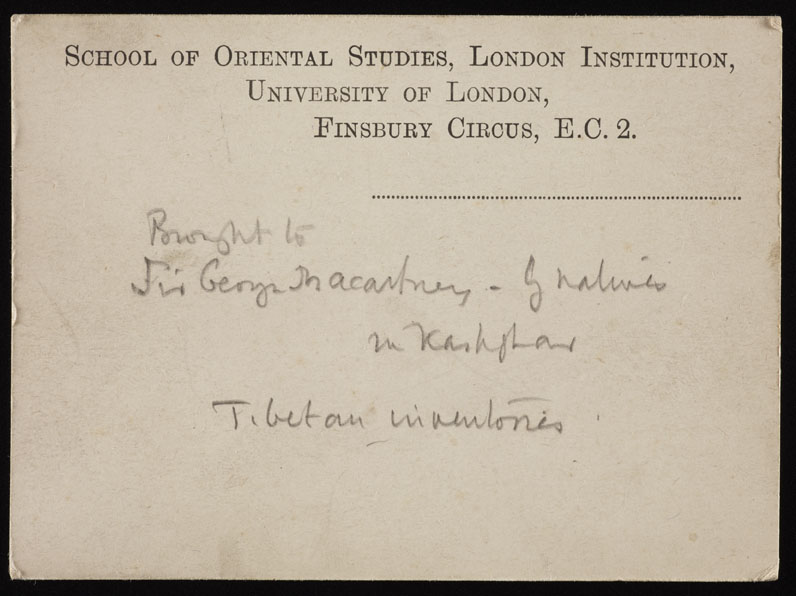 School of Oriental Studies, London Institution,
University of London,
Finsbury Circus, E.C. 2.
Brought to
Sir George Macartney - by natives
in Kashghar
Tibetan inventories